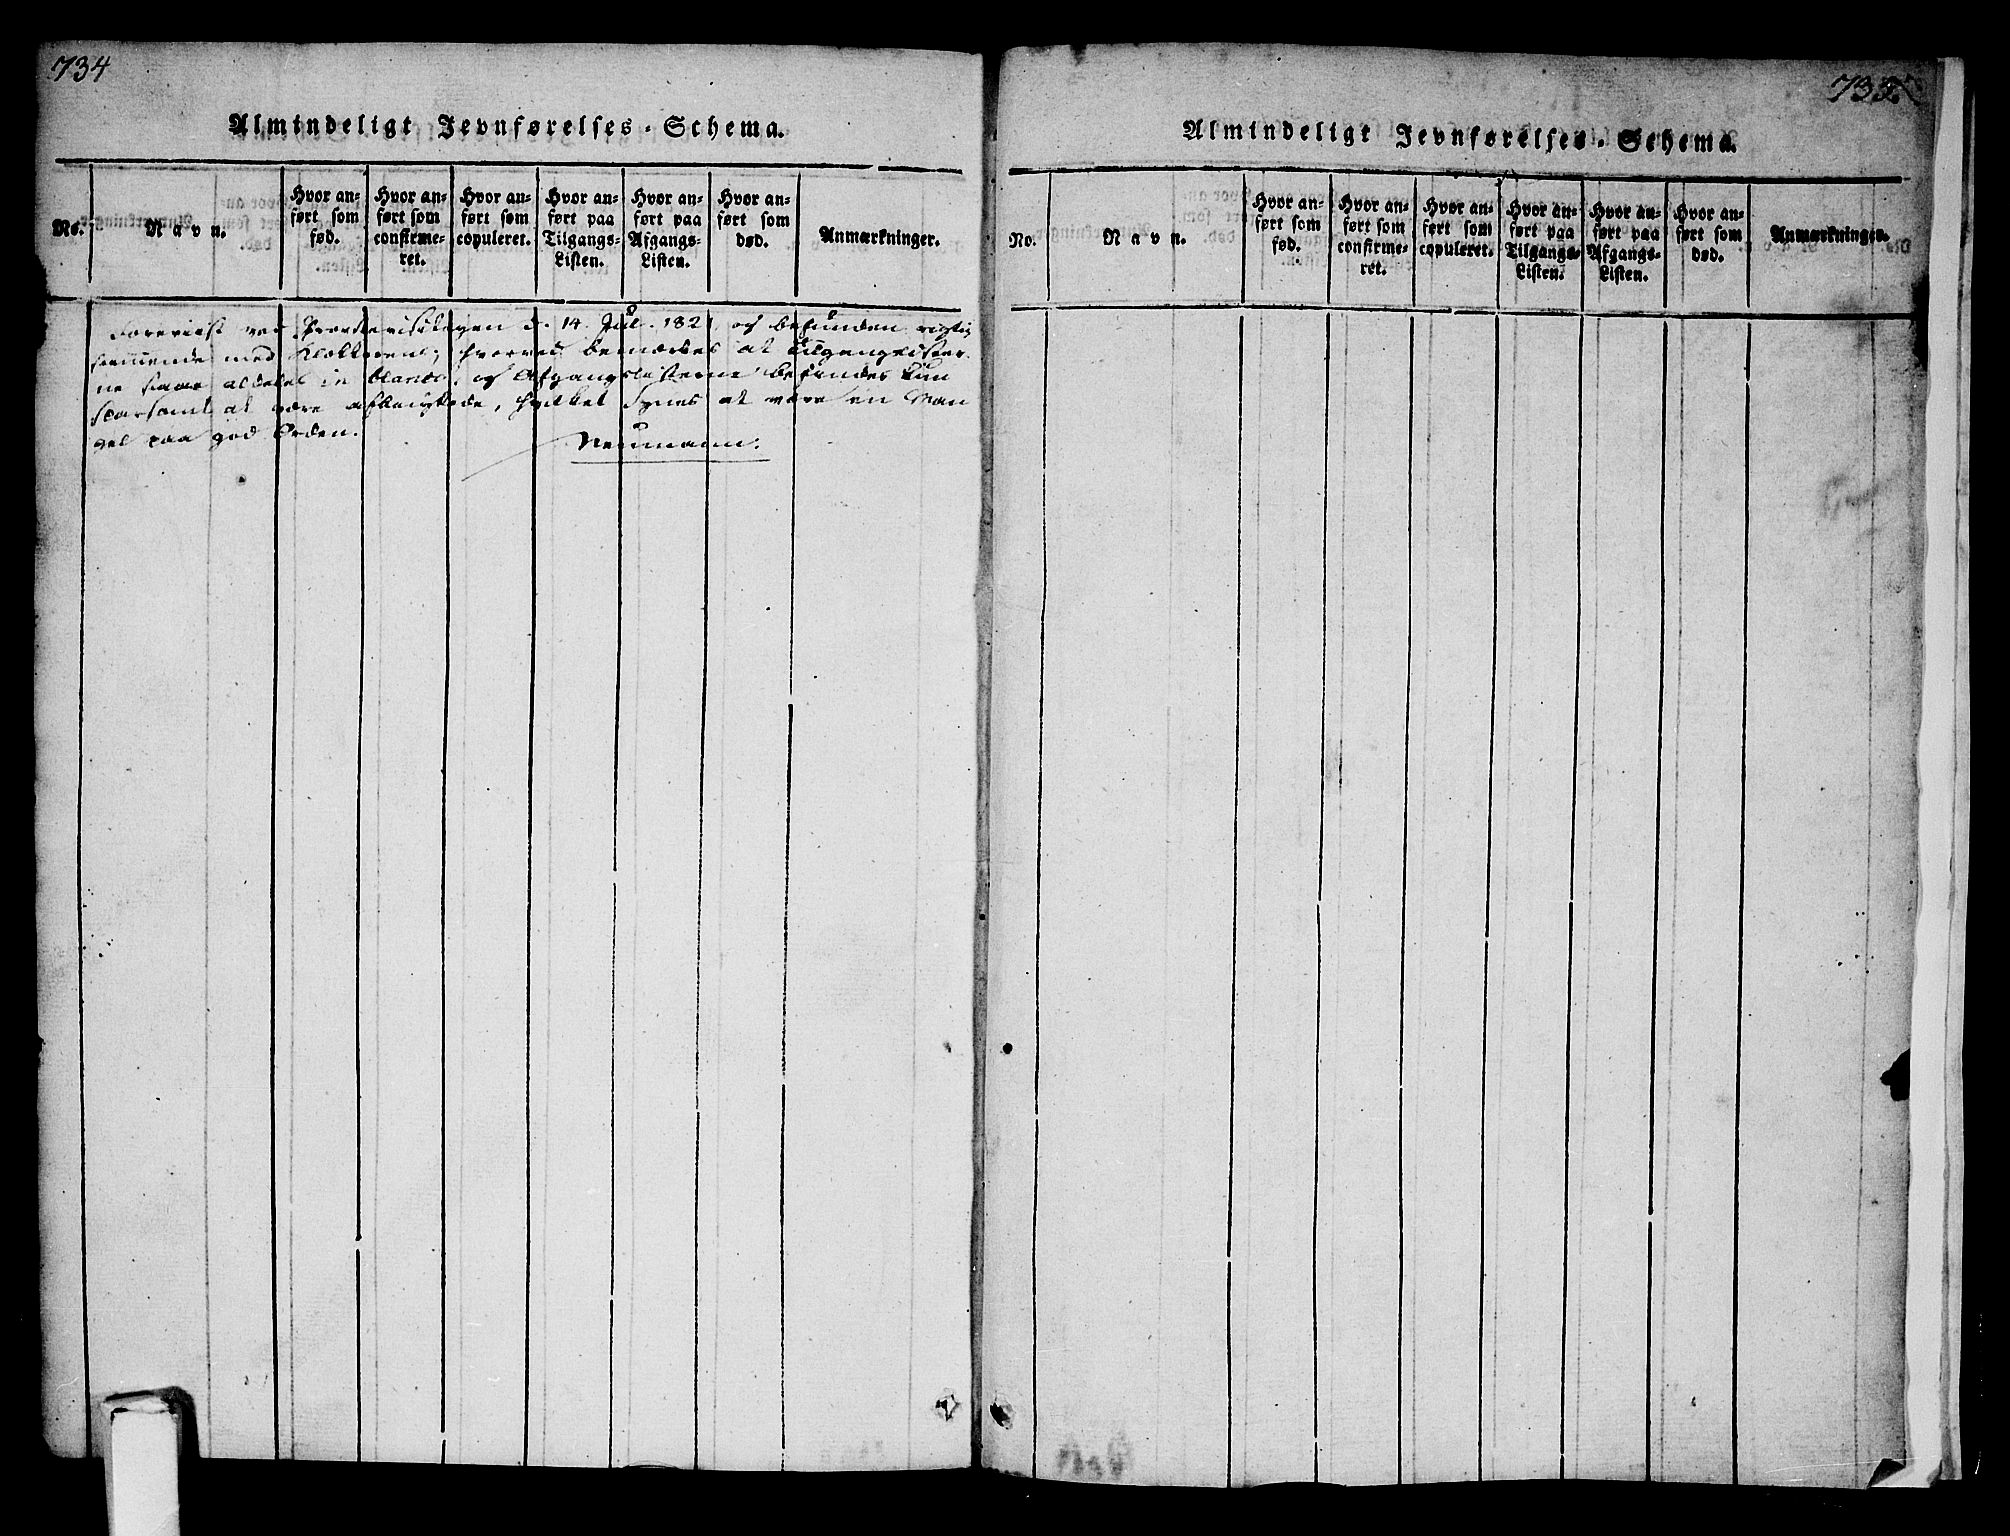 734
Almindeligt Jevnførelses-Schema.
No.
Navn.
Hvor an-
ført som
fød.
Hvor an-
ført som
confirme-
ret.
Hvor an-
ført som
copuleret.
Hvor an-
ført paa
Tilgangs-
Listen.
Hvor an-
ført paa
Afgangs-
Listen.
Hvor an-
ført som
død.
Anmærkninger.
Foreviist ved Provstevisitazen d. 14. Jul. 1821, og befunden rigtig
stemmende med Klokkerens, hvorved bemærkes at Tilgangslister-
ne staae aldeles in blanco, og Afgangslisterne befindes kun
sparsomt at være afbenyttede, hvilket synes at være en Man
gel paa god Orden.
Neumann.
735.
Almindeligt Jevnførelses-Schema.
No.
Navn.
Hvor an-
ført som
fød.
Hvor an-
ført som
confirme-
ret.
Hvor an-
ført som
copuleret.
Hvor an-
ført paa
Tilgangs-
Listen.
Hvor an-
ført paa
Afgangs-
Listen.
Hvor an-
ført som
død.
Anmærkninger.